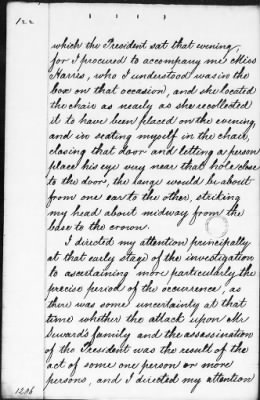 122
which the President sat that evening,
for I procured to accompany me Miss
Harris, who I understood was in the
box on that occasion, and she located
the chair as nearly as she recollected
it to have been placed on the evening,
and in seating myself in the chair,
closing that door and letting a person
place his eye very near that hole close
to the door, the range would be about
from one ear to the other, striking
my head about midway from the
base to the crown.
I directed my attention principally
at that early stage of the investigation
to ascertaining more particularly the
precise period of the occurrence, as
there was some uncertainty at that
time whether the attack upon Mr
Seward's family and the assassination
of the President was the result of the
act of some one person or more
persons, and I directed my attention
1206